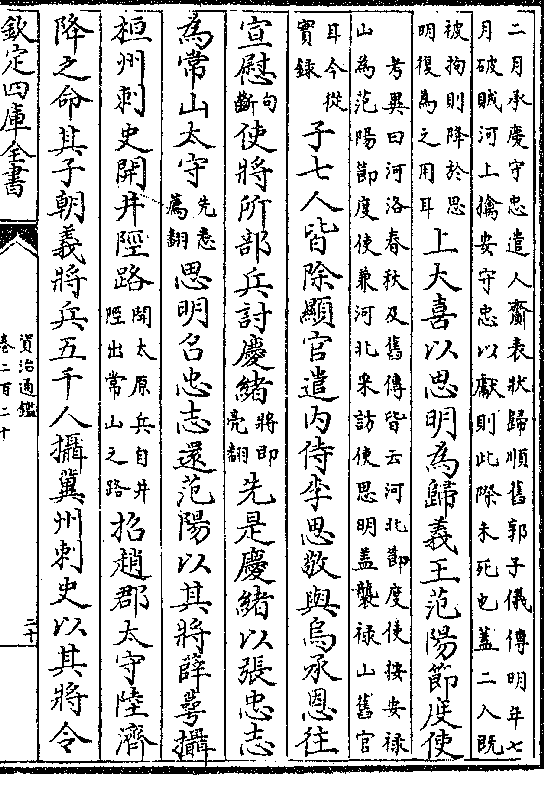 二月承慶守忠遣人齎表狀歸順舊郭子儀傳明年七
月破賊河上擒安守忠以獻則此際未死也蓋二人既
被拘則降於思
明復為之用耳
上大喜以思明為歸義王范陽節度使
考異曰河洛春秋及舊傳皆云河北節度使按安祿
山為范陽節度使兼河北采訪使思明蓋襲祿山舊官
耳今從
實録
子七人皆除顯官遣内侍李思敬與烏承恩往
宣慰
句
斷
使將所部兵討慶緒
將即
亮翻
先是慶緒以張忠志
為常山太守
先悉
薦翻
思明召忠志還范陽以其將薛蕚攝
桓州刺史開井陘路
開太原兵自井
陘出常山之路
招趙郡太守陸濟
降之命其子朝義將兵五千人攝冀州刺史以其將令
欽定四庫全書
資治通鑑
卷二百二十
二十